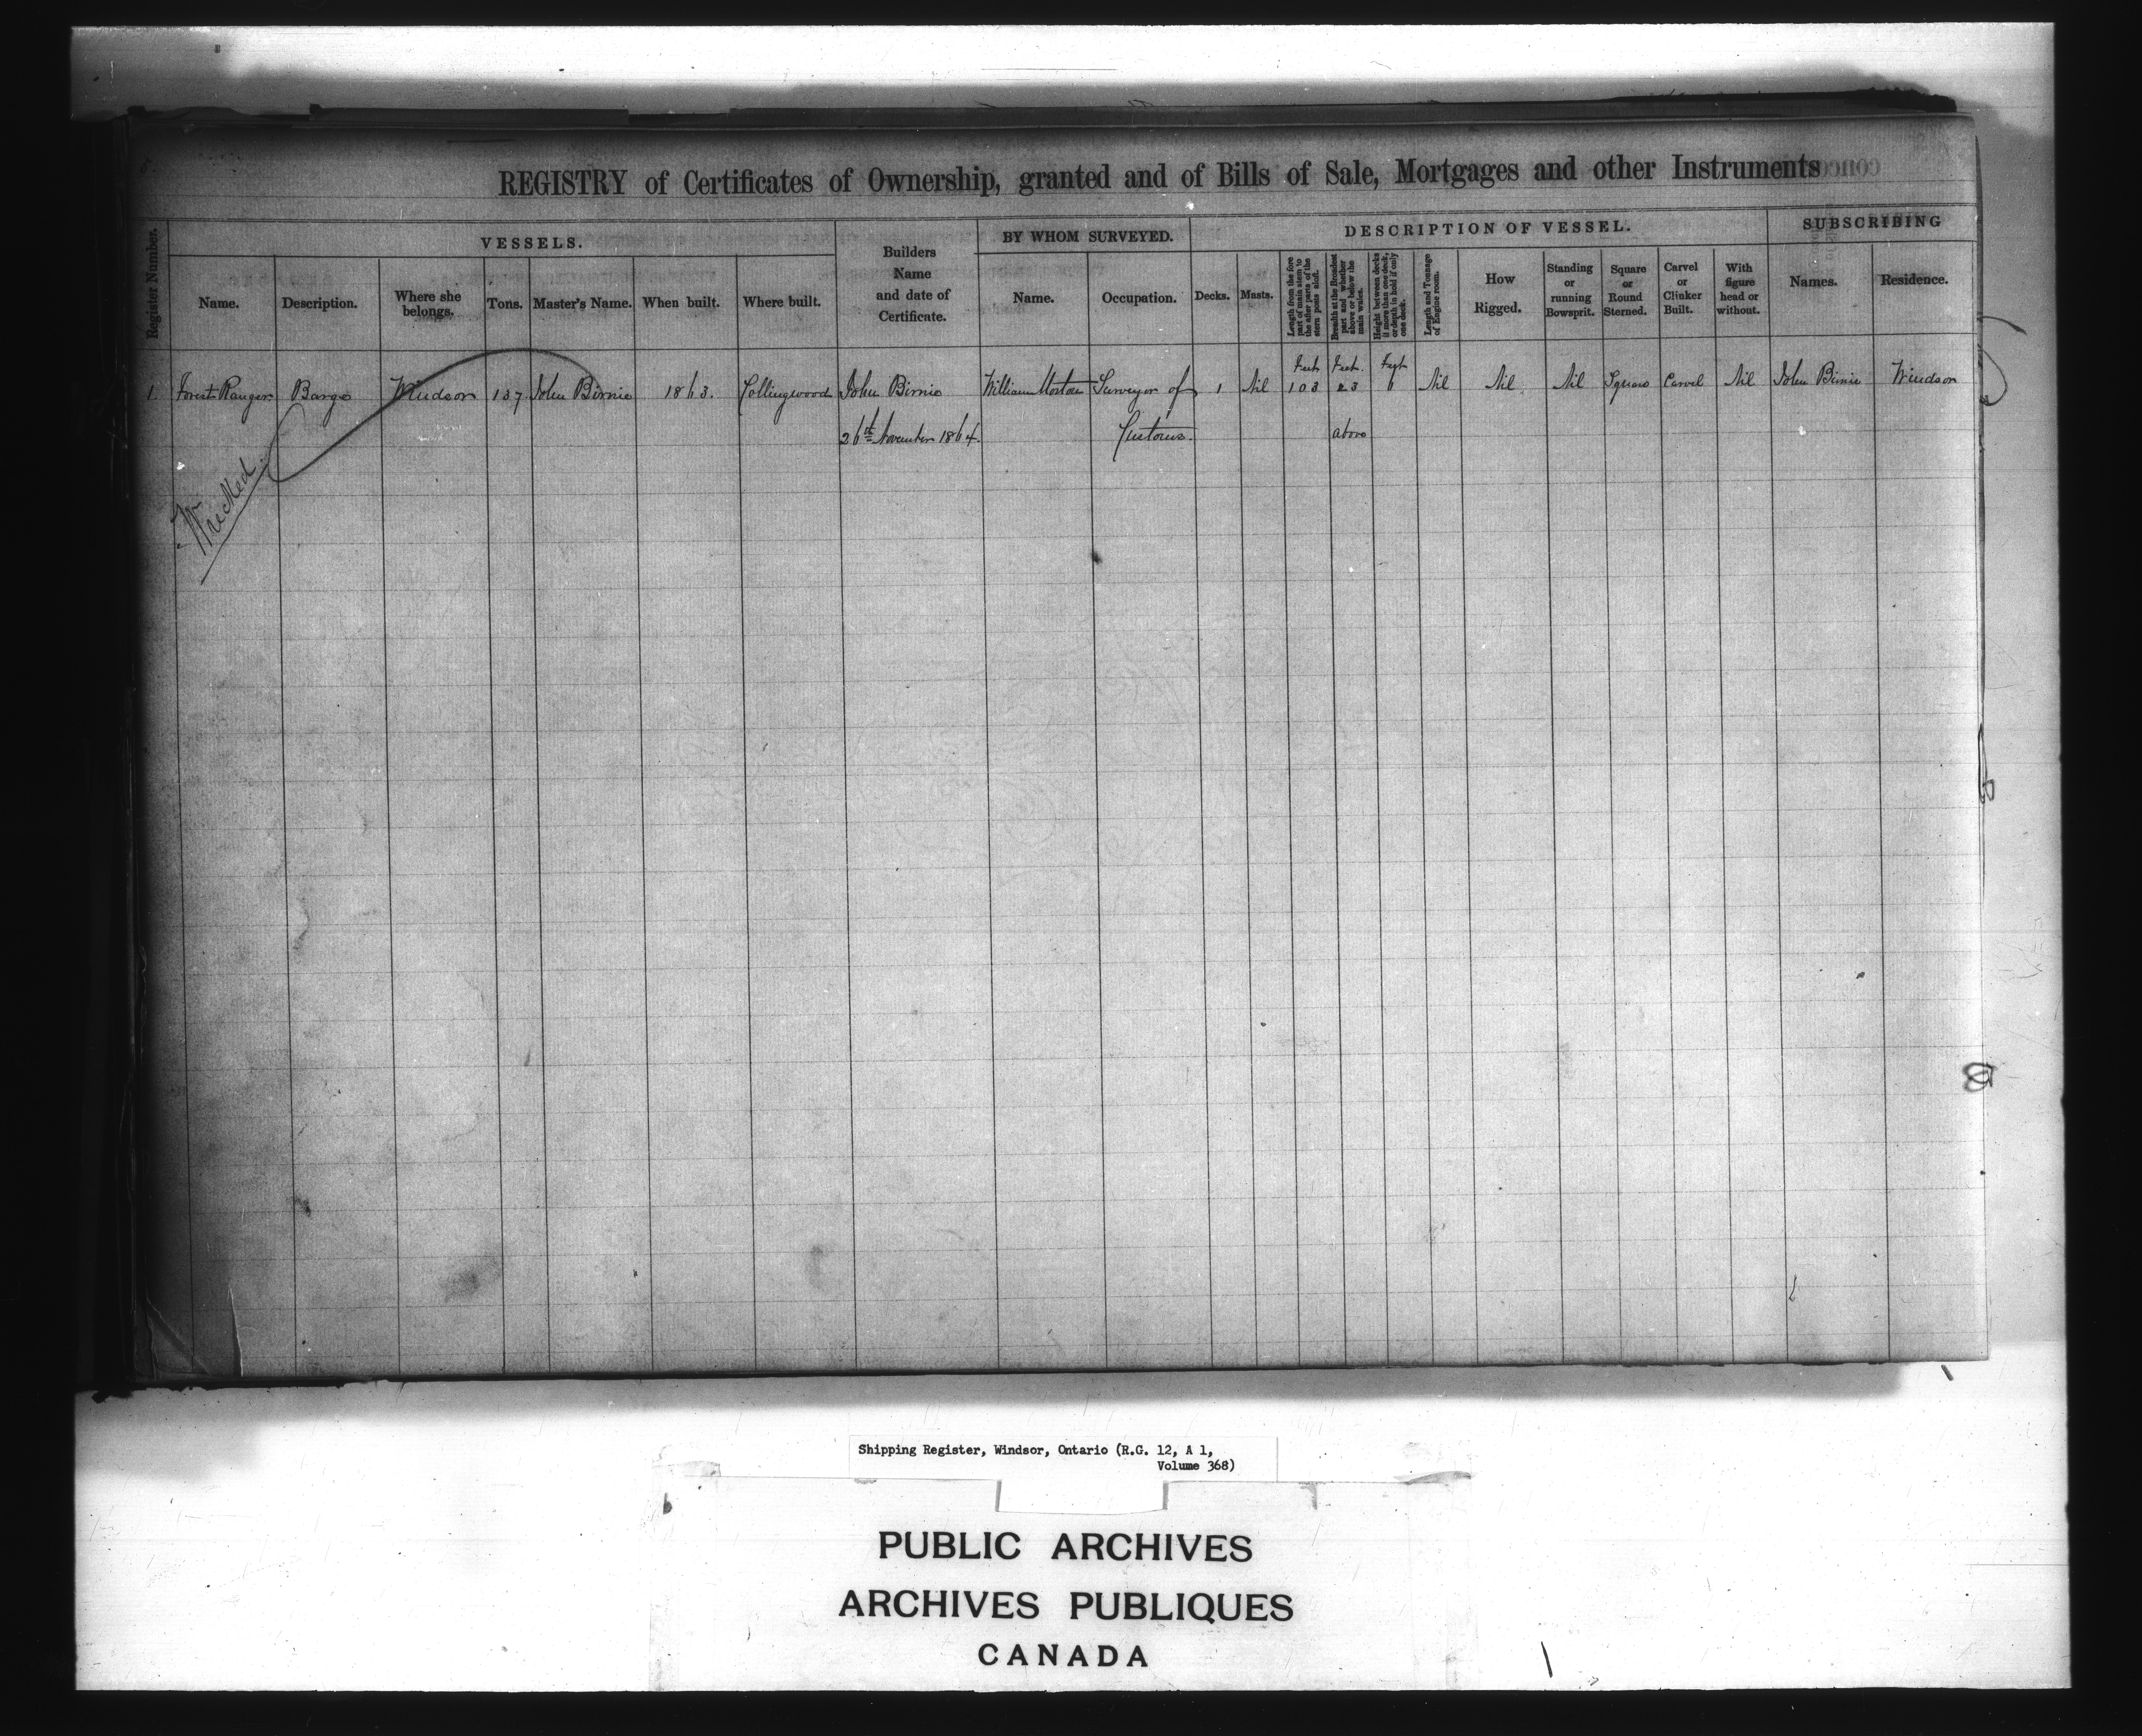 REGISTRY of Certificates of Ownership, granted and of Bills of Sale, Mortgages and other Instruments
Register Number.
VESSELS.
Name.
Description.
Where she belongs.
Tons.
Master's Name.
When built.
Where built.
Builders Name and date of Certificate.
BY WHOM SURVEYED.
Name.
Occupation.
DESCRIPTION OF VESSEL.
Decks.
Masts.
Length from the fore part of main stem to the after parts of the stern posts aloft.
Breadth at the Broadest part and whether above or below the main wales.
Height between decks if more than one deck, or depth in hold if only one deck.
Length and Tonnage of Engine room.
How Rigged.
Standing or running Bowsprit.
Square or Round Sterned.
Carvel or Clinker Built.
With figure head or without.
SUBSCRIBING
Names.
Residence.
Feet Feet. Feet
1. Forest Ranger Barge Windsor 137 John Birnie 1863. Collingwood John Birnie William Morton Surveyor of 1 Nil 103 23 6 Nil Nil Nil Square Carvel Nil John Birnie Windsor
26th November 1864. Customs. above
Wrecked.
Shipping Register, Windsor, Ontario (R.G. 12, A 1,
Volume 368)
PUBLIC ARCHIVES
ARCHIVES PUBLIQUES
CANADA